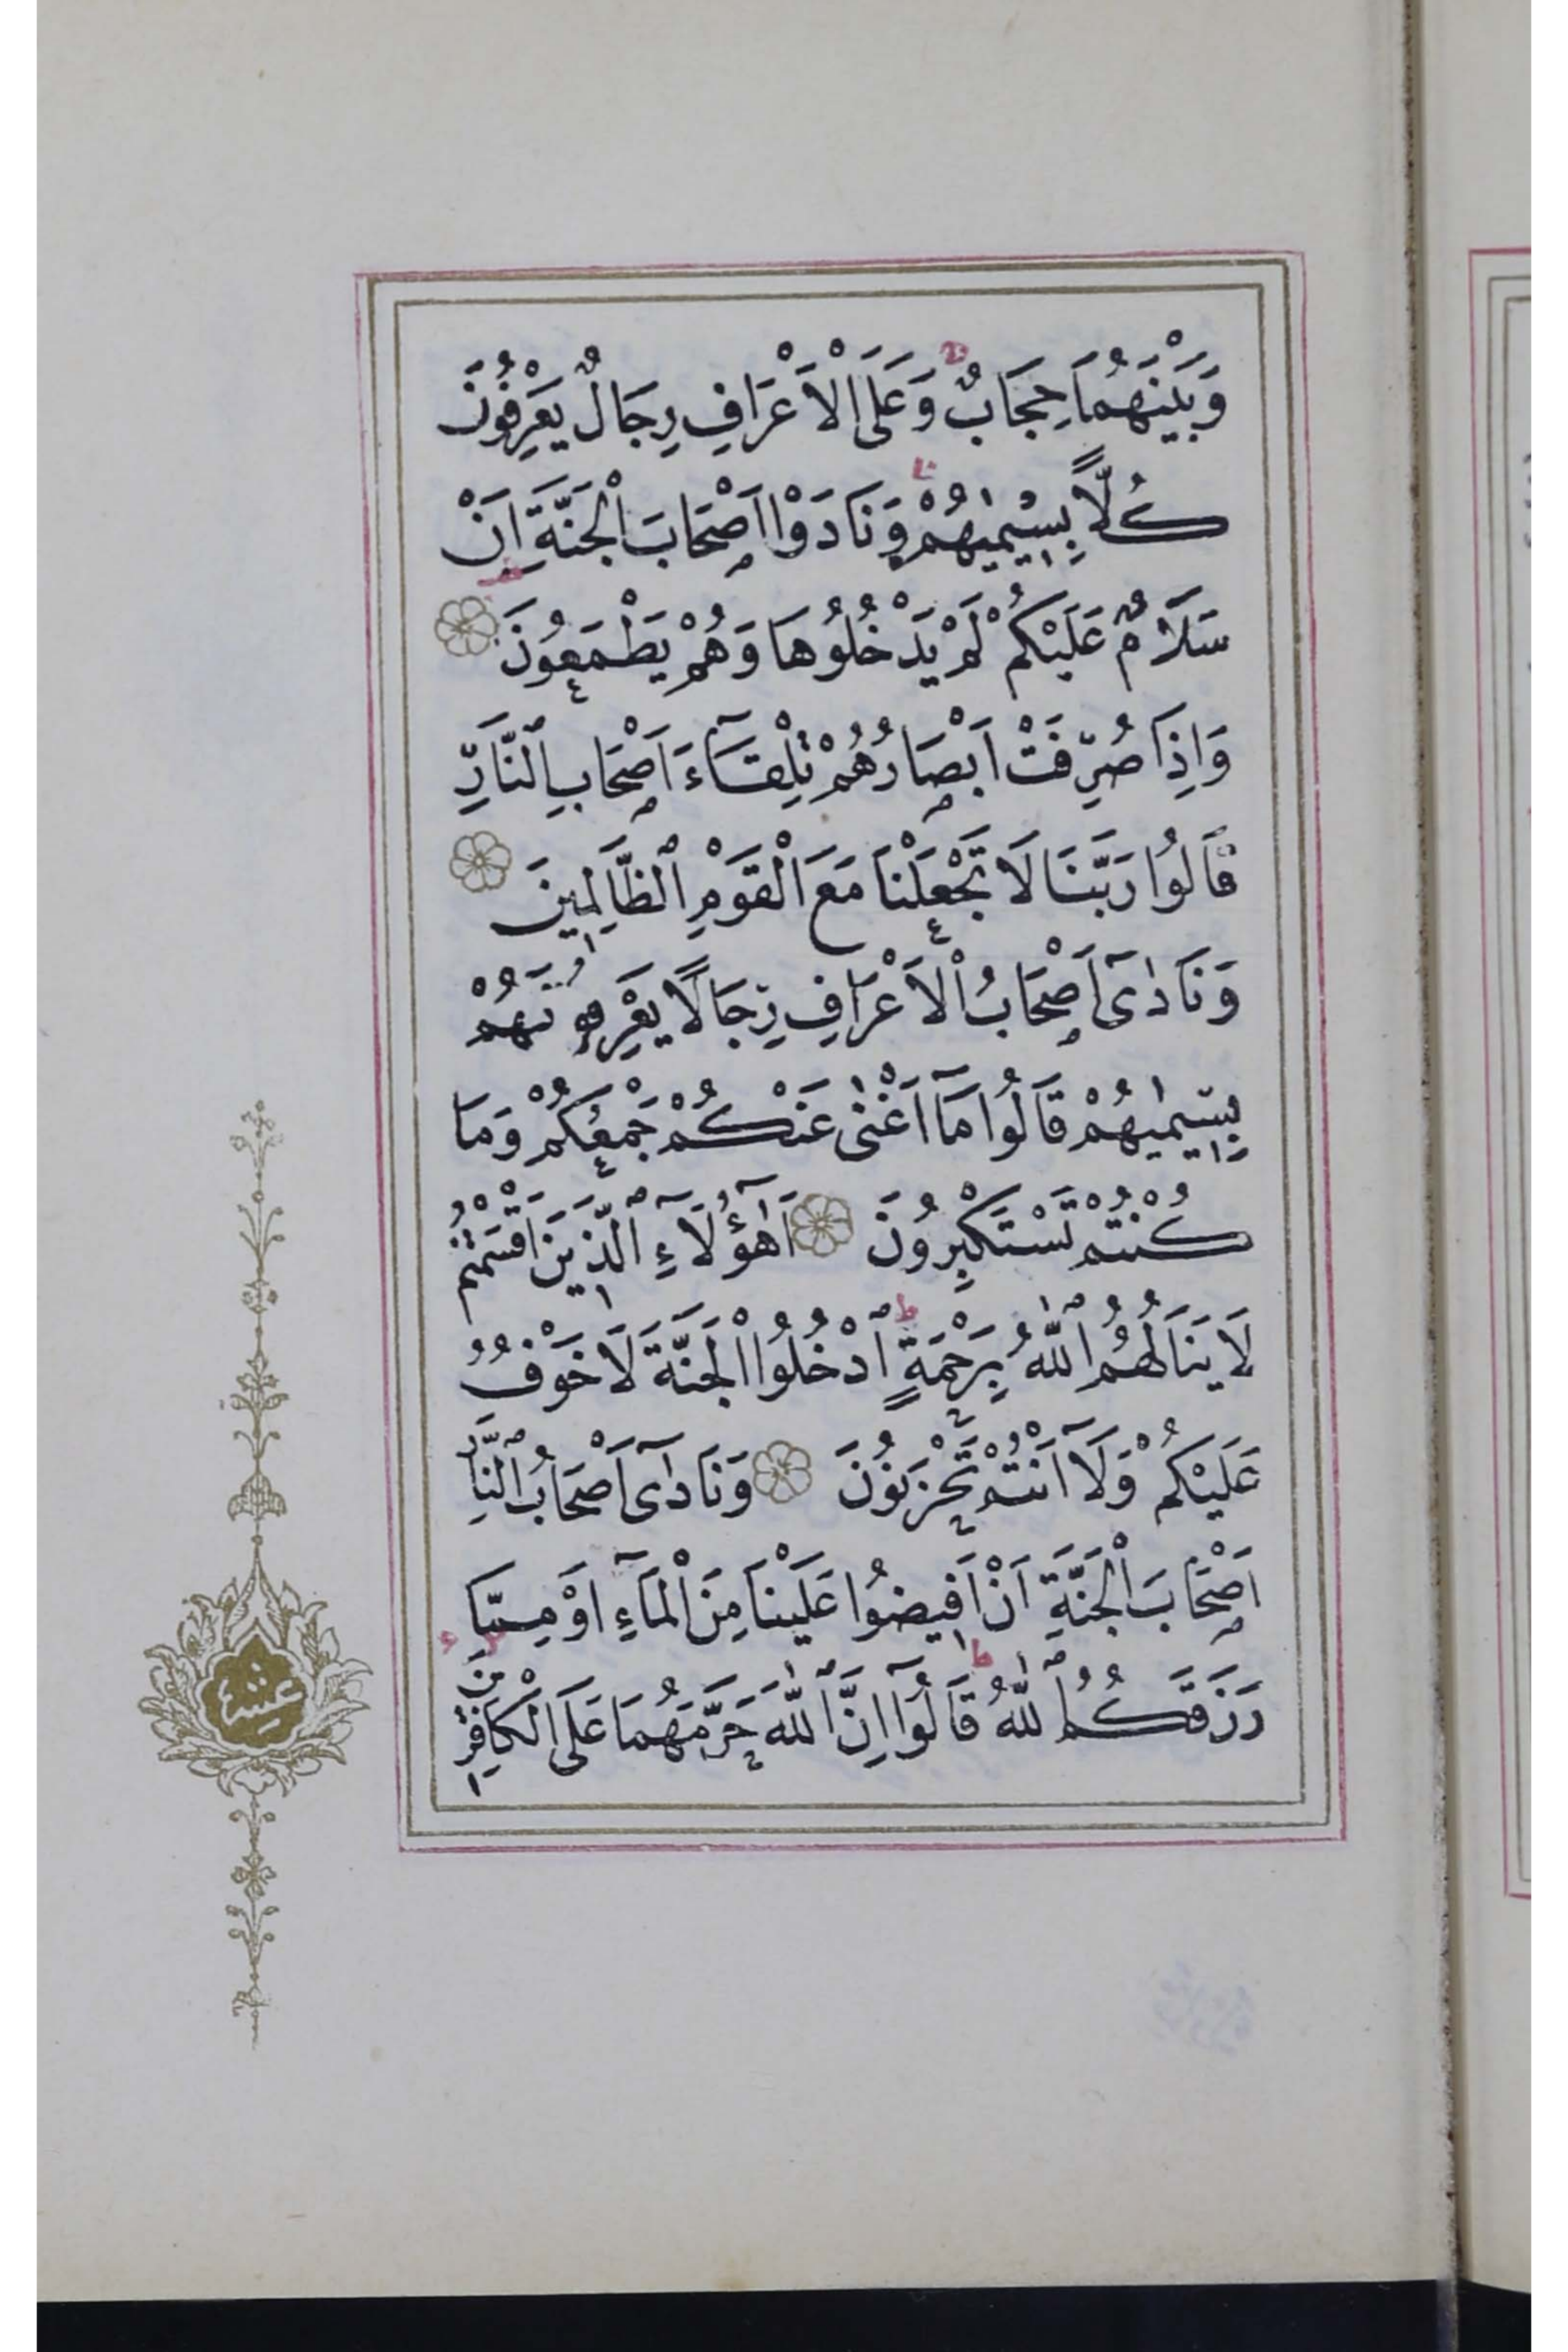 وَبَيْنَهُمَا حِجَابٌ وَعَلَى الْاَعْرَافِ رِجَالٌ يَعْرِفُونَ
كُلًّا بِسِيمٰيهُمْ وَنَادَوْا اَصْحَابَ الْجَنَّةِ اَنْ
سَلَامٌ عَلَيْكُمْ لَمْ يَدْخُلُوهَا وَهُمْ يَطْمَعُونَ
وَاِذَا صُرِفَتْ اَبْصَارُهُمْ تِلْقَآءَ اَصْحَابِ النَّارِ
قَالُوا رَبَّنَا لَا تَجْعَلْنَا مَعَ الْقَوْمِ الظَّالِمِينَ
وَنَادٰٓى اَصْحَابُ الْاَعْرَافِ رِجَالًا يَعْرِفُونَهُمْ
بِسِيمٰيهُمْ قَالُوا مَآ اَغْنٰى عَنْكُمْ جَمْعُكُمْ وَمَا
كُنْتُمْ تَسْتَكْبِرُونَ اَهٰٓؤُلَآءِ الَّذِينَ اَقْسَمْتُمْ
لَا يَنَالُهُمُ اللّٰهُ بِرَحْمَةٍ اُدْخُلُوا الْجَنَّةَ لَا خَوْفٌ
عَلَيْكُمْ وَلَآ اَنْتُمْ تَحْزَنُونَ وَنَادٰٓى اَصْحَابُ النَّارِ
اَصْحَابَ الْجَنَّةِ اَنْ اَفِيضُوا عَلَيْنَا مِنَ الْمَآءِ اَوْ مِمَّا
رَزَقَكُمُ اللّٰهُ قَالُوٓا اِنَّ اللّٰهَ حَرَّمَهُمَا عَلَى الْكَافِرِينَ
عشر